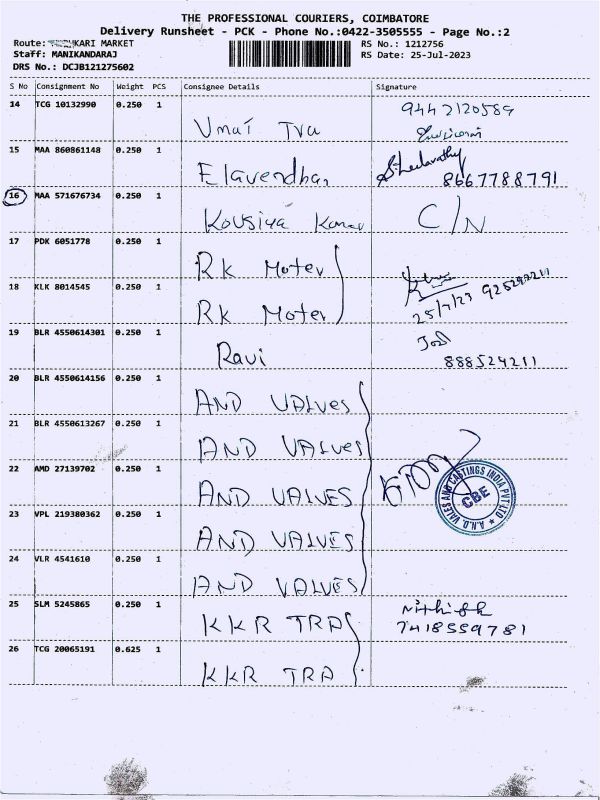 THE PROFESSIONAL COURIERS, COIMBATORE
Delivery Runsheet - PCK - Phone No.:0422-3505555 - Page No.:2
Route: KARI MARKET
RS No.: 1212756
Staff: MANIKANDARAJ
RS Date: 25-Jul-2023
DRS No.: DCJB121275602
S No Consignment No Weight PCS Consignee Details Signature
14 TCG 10132990 0.250 1 Umai Tra 9442120589
15 MAA 860861148 0.250 1 Elavendhan S. Leelavathy
8667788791
16 MAA 571676734 0.250 1 Kousiya C/N
17 PDK 6051778 0.250 1 RK Moter
18 KLK 8014545 0.250 1 RK Moter 25/7/23
19 BLR 4550614301 0.250 1 Ravi
888524211
20 BLR 4550614156 0.250 1 AND VALVES
21 BLR 4550613267 0.250 1 AND VALVES
22 AMD 27139702 0.250 1 AND VALVES
A.N.D. VALES AND CASTINGS INDIA PVT LTD
CBE
23 VPL 219380362 0.250 1 AND VALVES
24 VLR 4541610 0.250 1 AND VALVES
25 SLM 5245865 0.250 1 KKR TRA
7418559781
26 TCG 20065191 0.625 1 KKR TRA